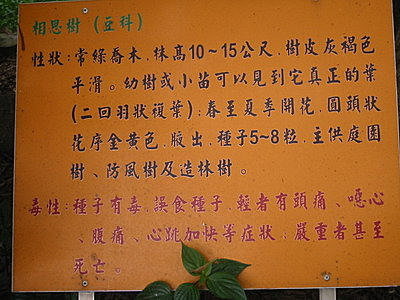 相思樹(豆科)
性狀:常綠喬木,株高10~15公尺,樹皮灰褐色
平滑。幼樹或小苗可以見到它真正的葉
(二回羽狀複葉);春至夏季開花,圓頭狀
花序金黃色,腋出,種子5~8粒,主供庭園
樹、防風樹及造林樹。
毒性:種子有毒,誤食種子,輕者有頭痛、噁心
、腹痛、心跳加快等症狀;嚴重者甚至
死亡。